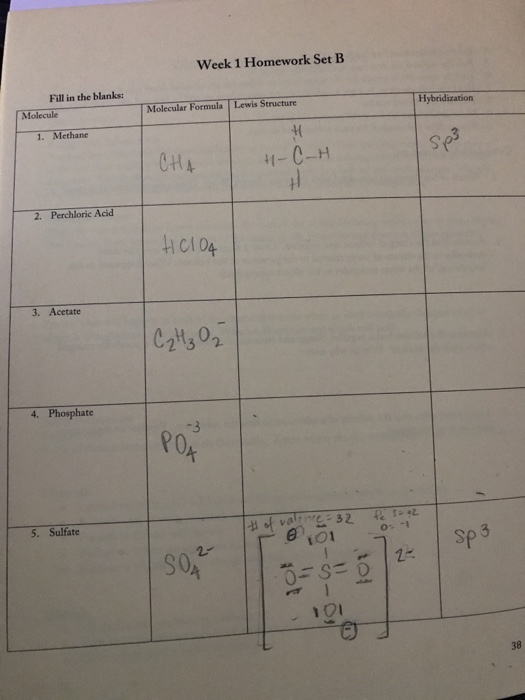 Week 1 Homework Set B
Fill in the blanks:
Molecule Molecular Formula Lewis Structure Hybridization
1. Methane
CH4
H
H-C-H
H
sp3
2. Perchloric Acid
HClO4
3. Acetate
C2H3O2-
4. Phosphate
PO4-3
5. Sulfate
SO42-
# of valence = 32
O
O=S=O
O
2-
sp3
38